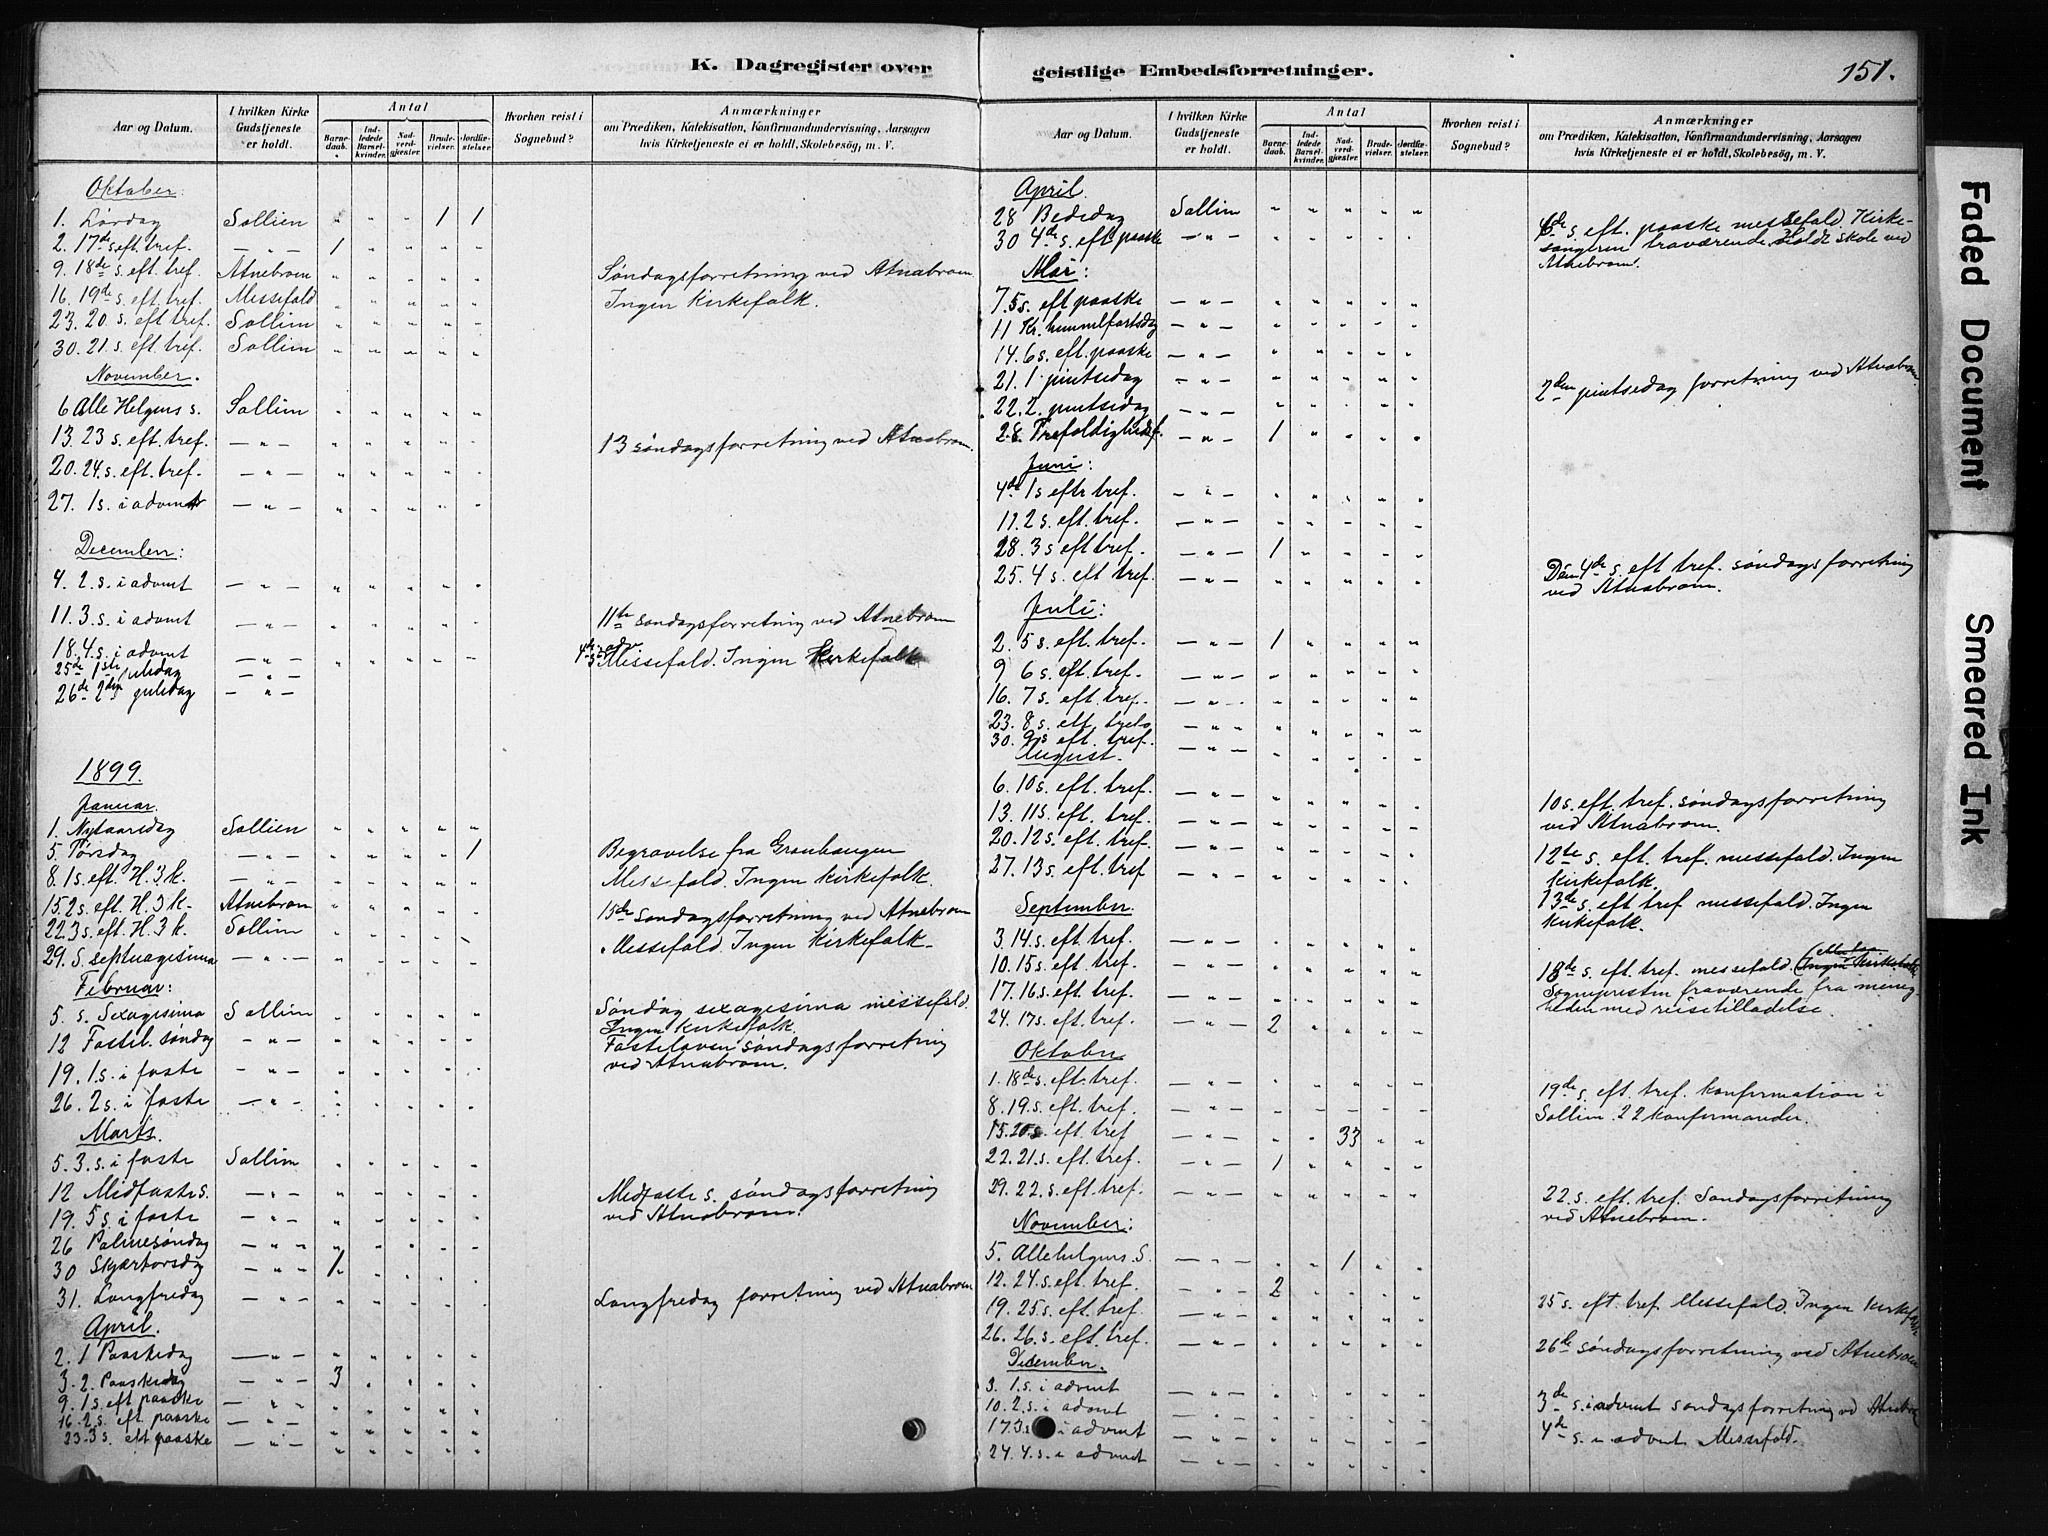 K. Dagregister over
Aar og Datum. I hvilken Kirke Gudstjeneste er holdt. Antal Barnedaab. Indledede Barselkvinder. Nadverdgjæster. Brudevielser. Jordfæstelser. Hvorhen reist i Sognebud? Anmærkninger om Prædiken, Katekisation, Konfirmandundervisning, Aarsagen hvis Kirketjeneste ei er holdt, Skolebesøg, m. V.
Oktober:
1. Lørdag Sollien " " " 1 1
2. 17de s. eft. tref. — " — 1 " " " "
9. 18de s. eft. tref. Atnebrom " " " " " Søndagsforretning ved Atnabrom
16. 19de s. eft. tref. Messefald " " " " " Ingen Kirkefolk.
23. 20. s. eft. tref. Sollim " " " " "
30. 21. s. eft. tref. Sollim " " " " "
November.
6 Alle Helgens s. Sollim " " " " "
13. 23 s. eft. tref. — " — " " " " " 13 søndagsforretning ved Atnabrom.
20. 24. s. eft. tref. — " — " " " " "
27. 1s. i advent — " — " " " " "
December:
4. 2. s. i advent — " — " " " " "
11. 3. s. i advent — " — " " " " " 11te søndagsforretning ved Atnebrom
18. 4. s. i advent — " — " " " " " Messefald. Ingen Kirkefolk
25de 1ste juledag — " —
26de 2den juledag — " —
1899.
Januar.
1. Nytaarsdag Sollien " " " " "
5. Torsdag — " — " " " " 1 Begravelse fra Granhaugen
8. 1s. eft. H. 3 k. — " — " " " " " Messefald. Ingen Kirkefolk.
15. 2s. eft. H. 3 k. Atnebrom " " " " " 15de søndagsforretning ved Atnebrom
22. 3 s. eft. H. 3 k. Sollim " " " " " Messefald. Ingen Kirkefolk.
29. S. septuagesima — " — " " " " "
Februar:
5. s. Sexagesima Sollim " " " " " Søndag sexagesima messefald.
Ingen Kirkefolk.
12 Fastel. søndag — " — " " " " " Fastelaven søndagsforretning
ved Atnabrom.
19. 1. s. i faste — " — " " " " "
26. 2 s. i faste — " — " " " " "
Marts.
5. 3. s. i faste Sollim " " " " "
12 Midfaste s. — " — " " " " " Midfaste s. søndagsforretning
ved Atnabrom.
19. 5 s. i faste — " — " " " " "
26 Palmesøndag — " — " " " " "
30 Skjærtorsdag — " — 1 " " " "
31. Langfredag — " — " " " " " Langfredag forretning ved Atnabrom
April.
2. 1 Paaskedag — " — " " " " "
3. 2. Paaskedag — " — 3 " " " "
9. 1. s. eft paaske — " — " " " " "
16. 2 s. eft. paaske — " — " " " " "
23. 3 s. eft paaske — " — " " " " "
geistlige Embedsforretninger.
151.
Aar og Datum. I hvilken Kirke Gudstjeneste er holdt. Antal Barnedaab. Indledede Barselkvinder. Nadverdgjæster. Brudevielser. Jordfæstelser. Hvorhen reist i Sognebud? Anmærkninger om Prædiken, Katekisation, Konfirmandundervisning, Aarsagen hvis Kirketjeneste ei er holdt, Skolebesøg, m. V.
April.
28 Bededag Sollim " " " " " s. eft. paaske messefald. Kirke-
30 4de s. eft paaske — " — " " " " " sangeren fraværende. Holdt skole ved
Atnebrom.
Mai:
7. 5 s. eft paaske — " — " " " " "
11 Kr. himmelfartsdag — " — " " " " "
14. 6 s. eft. paaske — " — " " " " "
21. 1 pintsedag — " — " " " " "
22. 2. pintsedag — " — " " " " " 2den pintsedag forretning ved Atnabrom.
28. Trefoldighedsf. — " — 1 " " " "
Juni:
4de 1 s eftr tref. — " — " " " " "
11. 2 s. eft. tref. — " — " " " " "
28. 3 s eft tref. — " — 1 " " " "
25. 4 s. eft tref. — " — " " " " " Den 4de s. eft tref. søndagsforretning
ved Atnabrom.
Juli:
2. 5 s. eft. tref. — " — 1 " " " "
9 6 s. eft. tref. — " — " " " " "
16. 7 s. eft. tref. — " — " " " " "
23. 8 s. eft. — " — " " " " "
30. 9 s eft. tref. — " — " " " " "
August.
6. 10 s. eft. tref. — " — " " " " " 10 s. eft. tref. søndagsforretning
ved Atnabrom.
13. 11 s. eft. tref. — " — " " " " "
20. 12 s. eft. tref. — " — " " " " " 12te s. eft. tref. messefald. Ingen
Kirkefolk.
27. 13 s. eft. tref — " — " " " " " 13de s. eft tref messefald. Ingen
Kirkefolk.
September.
3. 14. s. eft. tref. — " — " " " " "
10. 15 s. eft. tref. — " — " " " " " 18de s. eft. tref. messefald.
17. 16 s. eft. tref. — " — " " " " " Sognepresten fraværende fra menig-
24. 17 s. eft. tref. — " — 2 " " " " heden med reisetilladelse.
Oktober
1. 18de s. eft. tref. — " — " " " " "
8. 19. s. eft. tref. — " — " " " " " 19de s. eft. tref. Konfirmation i
Sollim. 22 Konfirmander.
15. 20 s. eft. tref — " — " " 33 " "
22. 21. s. eft. tref. — " — 1 " " " "
29. 22. s. eft. tref. — " — " " " " " 22. s. eft. tref. Søndagsforretning
ved Atnebrom.
November:
5. Allehelgens S. — " — " " 1 " "
12. 24. s. eft. tref. — " — 2 " " " "
19. 25 s. eft. tref. — " — " " " " " 25 s. eft. tref. Messefald. Ingen Kirkefolk
26. 26. s. eft. tref. — " — " " " " " 26te søndagsforretning ved Atnebrom
December.
3. 1. s. i advent — " — " " " " " 3de s. i advent søndagsforretning ved
10. 2. s. i advent — " — " " " " " 4de s. i advent Messefald.
17. 3 s i advent — " — " " " " "
24. 4. s. i advent — " — " " " " "
Faded Document
Smeared Ink